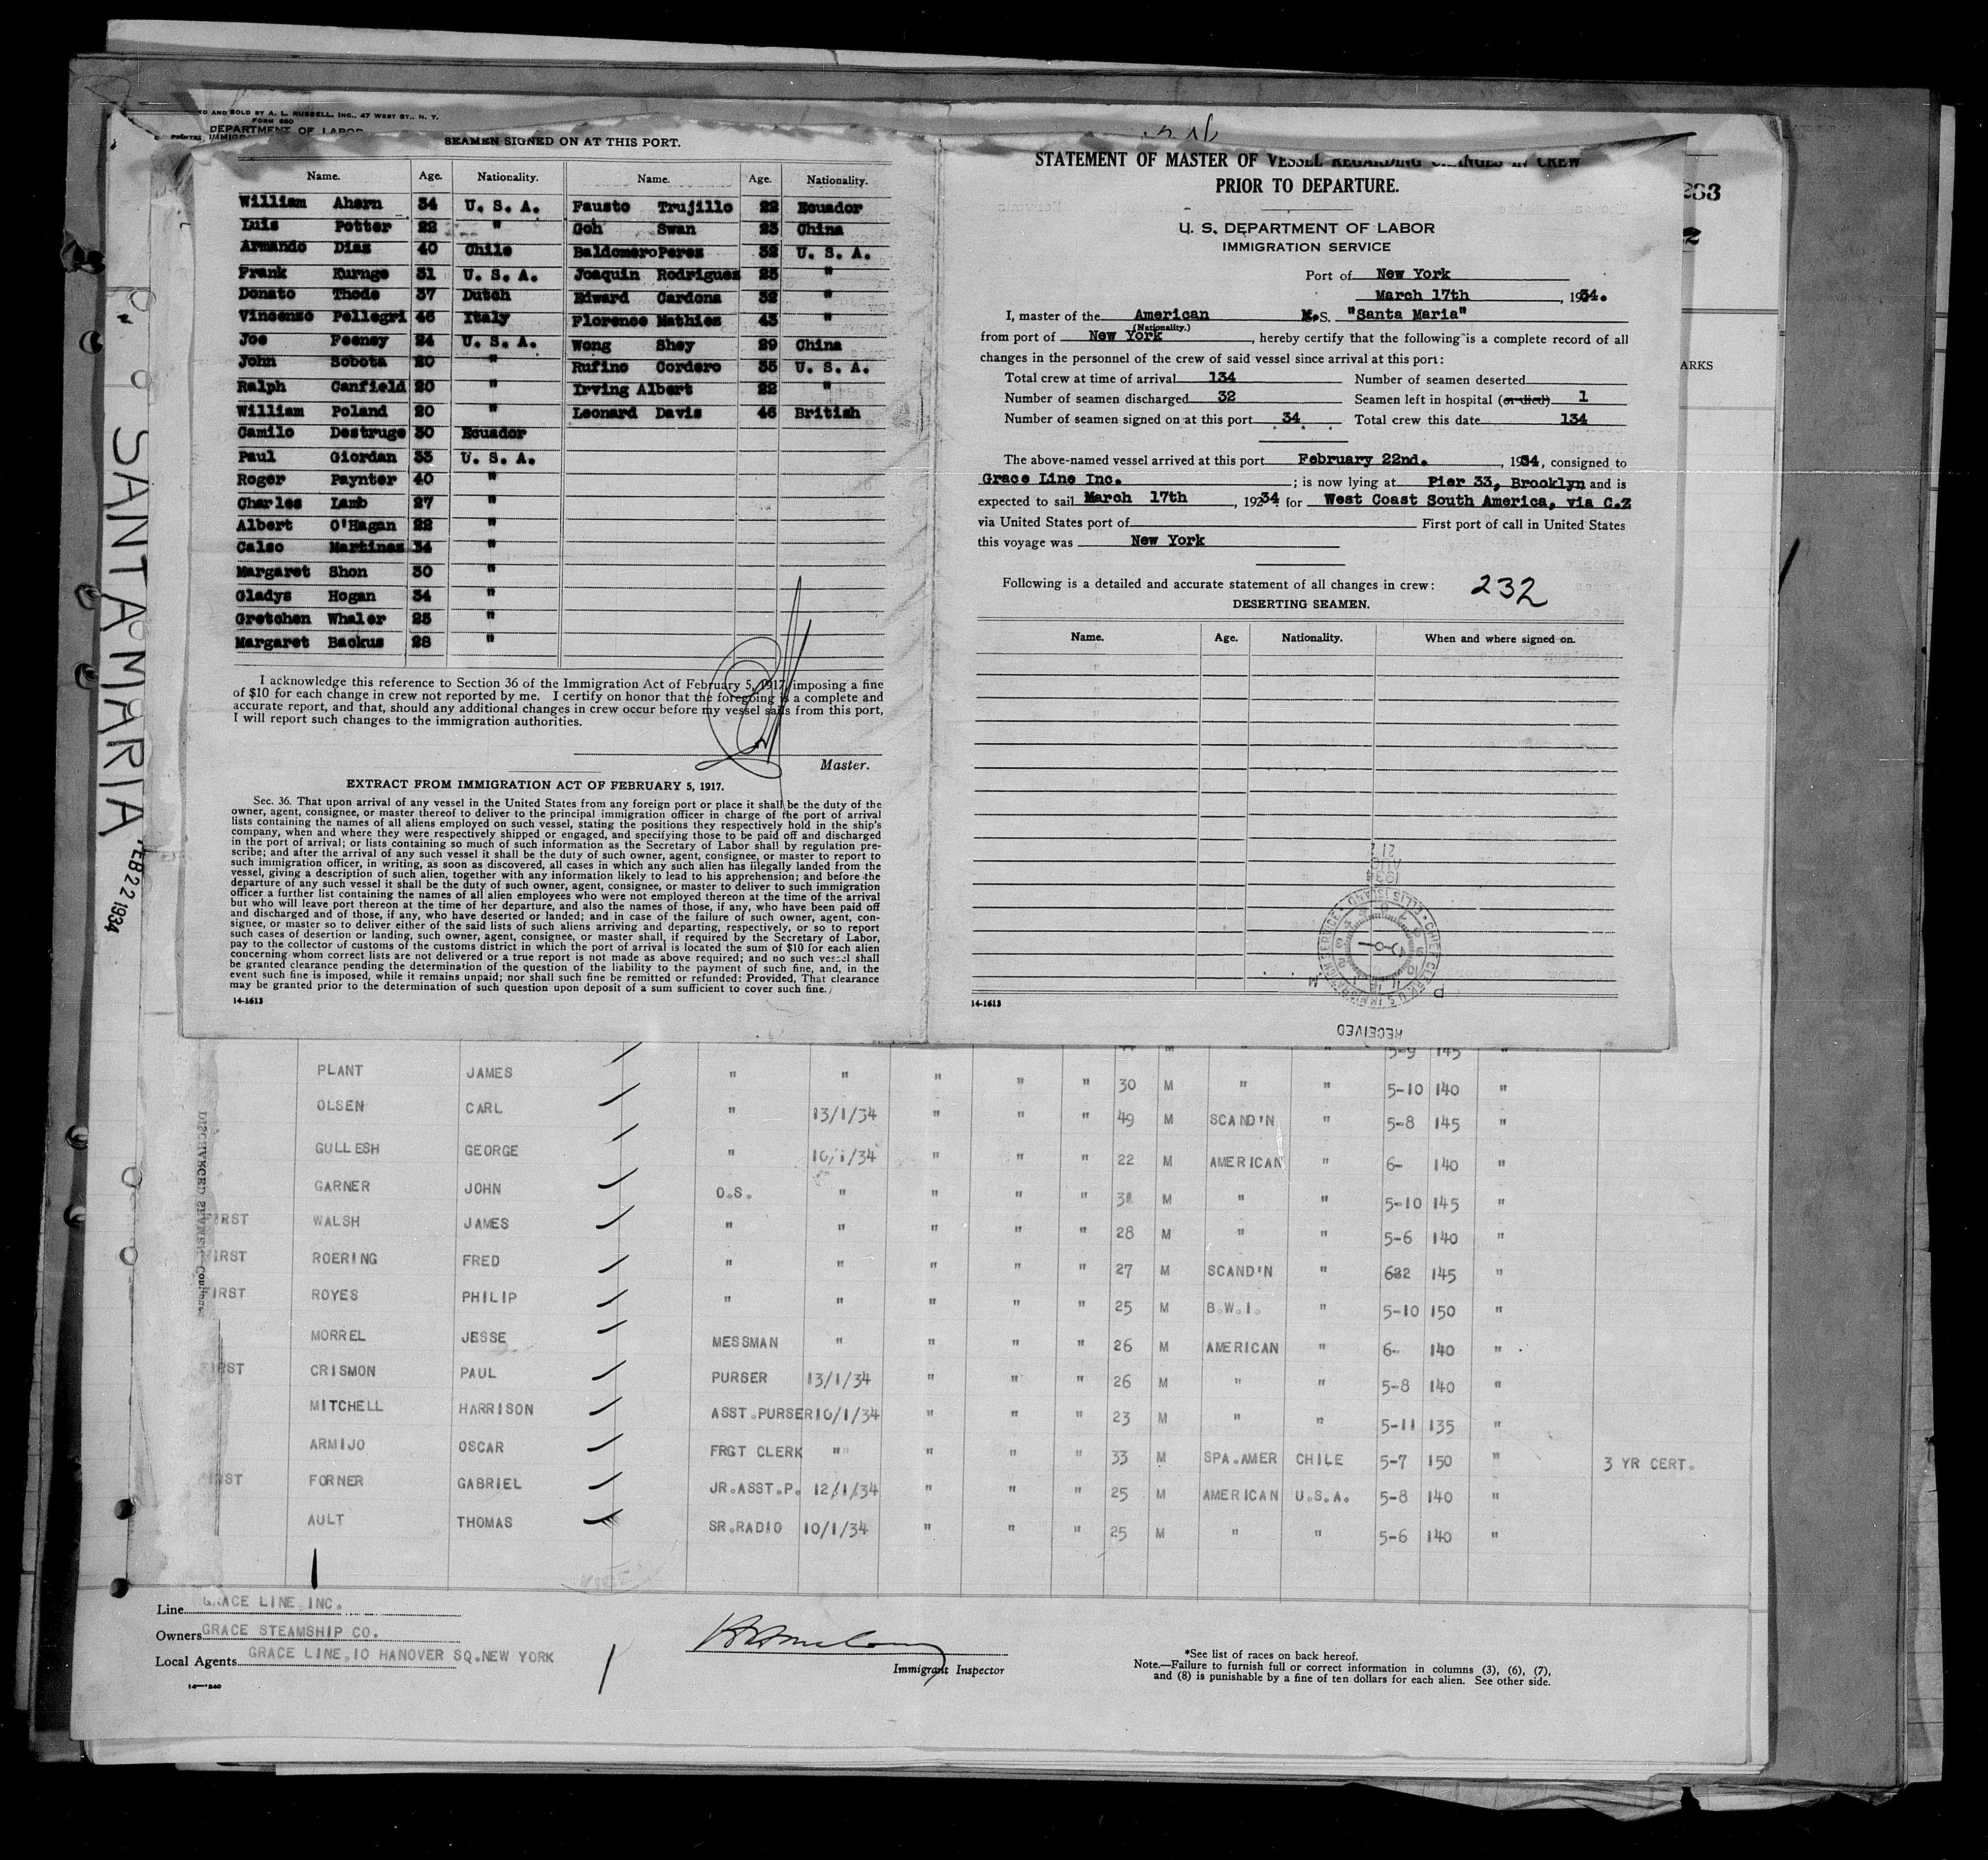 ED AND SOLD BY A. L. RUSSELL, INC., 47 WEST ST., N. Y.
FORM 680
DEPARTMENT OF LABOR
SEAMEN SIGNED ON AT THIS PORT.
Name. Age. Nationality. Name. Age. Nationality.
William Ahern 34 U. S. A. Fausto Trujillo 22 Ecuador
Luis Potter 22 " Goh Swan 23 China
Armando Diaz 40 Chile Baldomero Perez 32 U. S. A.
Frank Kurnge 31 U. S. A. Joaquin Rodriguez 25 "
Donato Thode 37 Dutch Edward Cardona 32 "
Vincenzo Pellegri 46 Italy Florence Mathiez 43 "
Joe Feeney 24 U. S. A. Wong Shey 29 China
John Sobota 20 " Rufino Cordero 35 U. S. A.
Ralph Canfield 20 " Irving Albert 22 "
William Poland 20 " Leonard Davis 46 British
Camilo Destruge 30 Ecuador
Paul Giordan 33 U. S. A.
Roger Paynter 40 "
Charles Lamb 27 "
Albert O'Hagan 22 "
Calso Martinez 34 "
Margaret Shon 30 "
Gladys Hogan 34 "
Gretchen Whaler 25 "
Margaret Backus 28 "
I acknowledge this reference to Section 36 of the Immigration Act of February 5, 1917, imposing a fine
of $10 for each change in crew not reported by me. I certify on honor that the foregoing is a complete and
accurate report, and that, should any additional changes in crew occur before my vessel sails from this port,
I will report such changes to the immigration authorities.
Master.
EXTRACT FROM IMMIGRATION ACT OF FEBRUARY 5, 1917.
Sec. 36. That upon arrival of any vessel in the United States from any foreign port or place it shall be the duty of the
owner, agent, consignee, or master thereof to deliver to the principal immigration officer in charge of the port of arrival
lists containing the names of all aliens employed on such vessel, stating the positions they respectively hold in the ship's
company, when and where they were respectively shipped or engaged, and specifying those to be paid off and discharged
in the port of arrival; or lists containing so much of such information as the Secretary of Labor shall by regulation pre-
scribe; and after the arrival of any such vessel it shall be the duty of such owner, agent, consignee, or master to report to
such immigration officer, in writing, as soon as discovered, all cases in which any such alien has illegally landed from the
vessel, giving a description of such alien, together with any information likely to lead to his apprehension; and before the
departure of any such vessel it shall be the duty of such owner, agent, consignee, or master to deliver to such immigration
officer a further list containing the names of all alien employees who were not employed thereon at the time of the arrival
but who will leave port thereon at the time of her departure, and also the names of those, if any, who have been paid off
and discharged and of those, if any, who have deserted or landed; and in case of the failure of such owner, agent, con-
signee, or master so to deliver either of the said lists of such aliens arriving and departing, respectively, or so to report
such cases of desertion or landing, such owner, agent, consignee, or master shall, if required by the Secretary of Labor,
pay to the collector of customs of the customs district in which the port of arrival is located the sum of $10 for each alien
concerning whom correct lists are not delivered or a true report is not made as above required; and no such vessel shall
be granted clearance pending the determination of the question of the liability to the payment of such fine, and, in the
event such fine is imposed, while it remains unpaid; nor shall such fine be remitted or refunded: Provided, That clearance
may be granted prior to the determination of such question upon deposit of a sum sufficient to cover such fine.
14-1613
STATEMENT OF MASTER OF VESSEL REGARDING CHANGES IN CREW
PRIOR TO DEPARTURE.
U. S. DEPARTMENT OF LABOR
IMMIGRATION SERVICE
Port of New York
March 17th, 1934.
I, master of the American M.S. "Santa Maria"
(Nationality.)
from port of New York, hereby certify that the following is a complete record of all
changes in the personnel of the crew of said vessel since arrival at this port:
Total crew at time of arrival 134 Number of seamen deserted
Number of seamen discharged 32 Seamen left in hospital (or died) 1
Number of seamen signed on at this port 34 Total crew this date 134
The above-named vessel arrived at this port February 22nd., 1934, consigned to
Grace Line Inc.; is now lying at Pier 33, Brooklyn and is
expected to sail March 17th, 192 34 for West Coast South America, via C.Z
via United States port of First port of call in United States
this voyage was New York
Following is a detailed and accurate statement of all changes in crew: 232
DESERTING SEAMEN.
Name. Age. Nationality. When and where signed on.
CHIEF CLERK U S IMMIGRATION SERVICE ELLIS ISLAND
RECEIVED
14-1613
283
ARKS
SANTA MARIA
FEB 22 1934
DISCHARGED SEAMEN—Continued
5-9 145 "
PLANT JAMES " " " " " 30 M " " 5-10 140 "
OLSEN CARL " 13/1/34 " " " 49 M SCAND'N " 5-8 145 "
GULLESH GEORGE " 10/1/34 " " " 22 M AMERICAN " 6- 140 "
GARNER JOHN O.S. " " " " 31 M " " 5-10 145 "
FIRST WALSH JAMES " " " " " 28 M " " 5-6 140 "
FIRST ROERING FRED " " " " " 27 M SCAND'N " 632 145 "
FIRST ROYES PHILIP " " " " " 25 M B.W.I. " 5-10 150 "
MORREL JESSE MESSMAN " " " " 26 M AMERICAN " 6- 140 "
FIRST CRISMON PAUL PURSER 13/1/34 " " " 26 M " " 5-8 140 "
MITCHELL HARRISON ASST.PURSER 10/1/34 " " " 23 M " " 5-11 135 "
ARMIJO OSCAR FRGT CLERK " " " " 33 M SPA.AMER CHILE 5-7 150 " 3 YR CERT.
FIRST FORNER GABRIEL JR.ASST.P. 12/1/34 " " " 25 M AMERICAN U.S.A. 5-8 140 "
AULT THOMAS SR.RADIO 10/1/34 " " " 25 M " " 5-6 140 "
Line GRACE LINE INC.
Owners GRACE STEAMSHIP CO.
Local Agents GRACE LINE, 10 HANOVER SQ. NEW YORK
Immigrant Inspector
*See list of races on back hereof.
Note.—Failure to furnish full or correct information in columns (3), (6), (7),
and (8) is punishable by a fine of ten dollars for each alien. See other side.